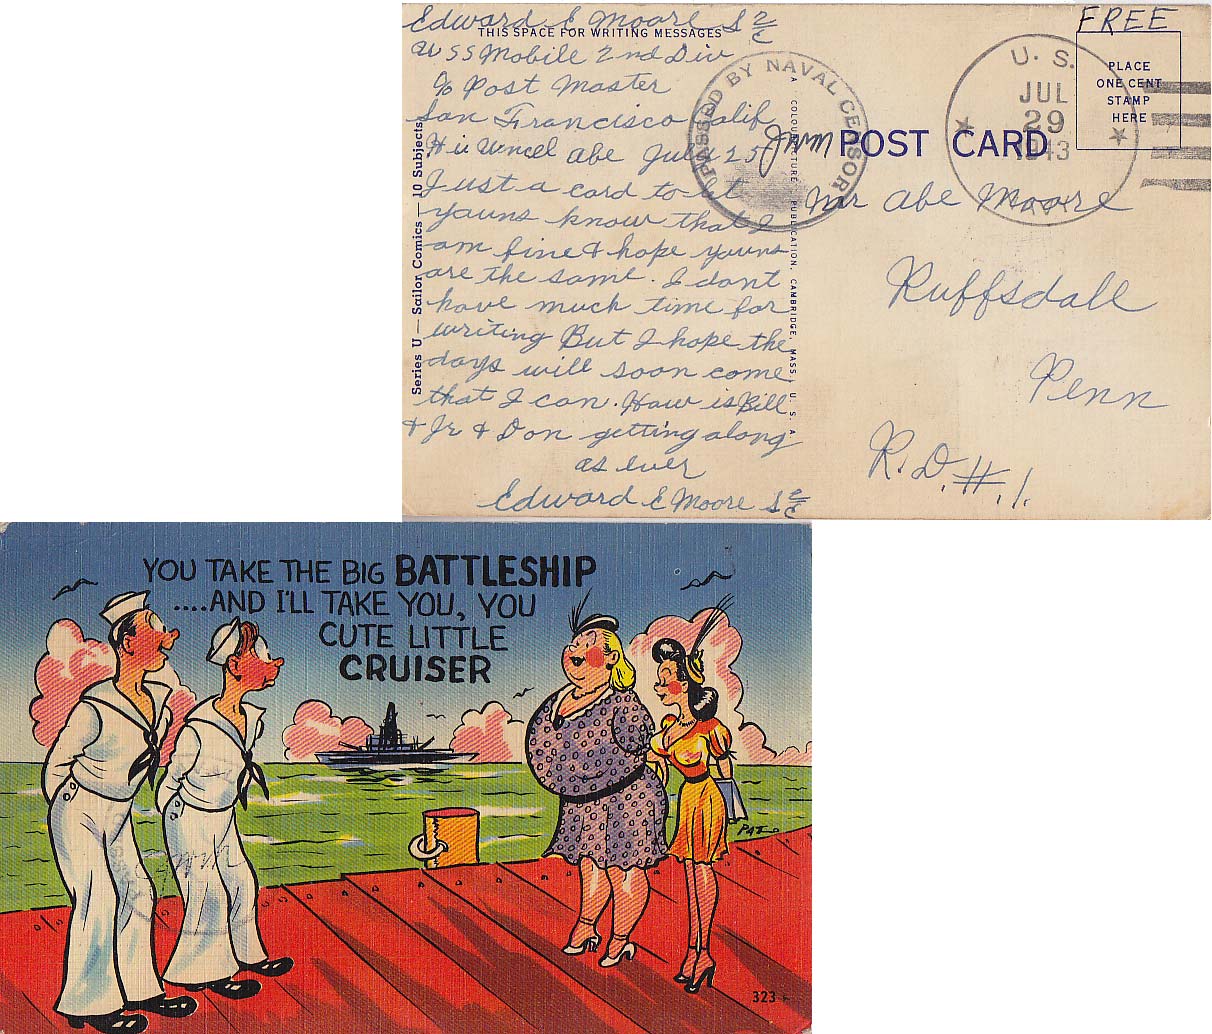 Edward E Moore S 2/c
THIS SPACE FOR WRITING MESSAGES
USS Mobile 2nd Div
c/o Post Master
San Francisco Calif
Hi Uncel Abe July 25
Just a card to let
youns know that I
am fine & hope youns
are the same. I dont
have much time for
writing But I hope the
days will soon come
that I can. How is Bill
& Jr & Don getting along
as ever
Edward E Moore S 2/c
Series U — Sailor Comics — 10 Subjects
PASSED BY NAVAL CENSOR
A COLOURPICTURE PUBLICATION, CAMBRIDGE, MASS. U. S. A.
FREE
PLACE
ONE CENT
STAMP
HERE
U. S.
JUL
29
1943
NAVY
POST CARD
Mr Abe Moore
Ruffsdall
Penn
R.D.#.1.
YOU TAKE THE BIG BATTLESHIP
....AND I'LL TAKE YOU, YOU
CUTE LITTLE
CRUISER
323